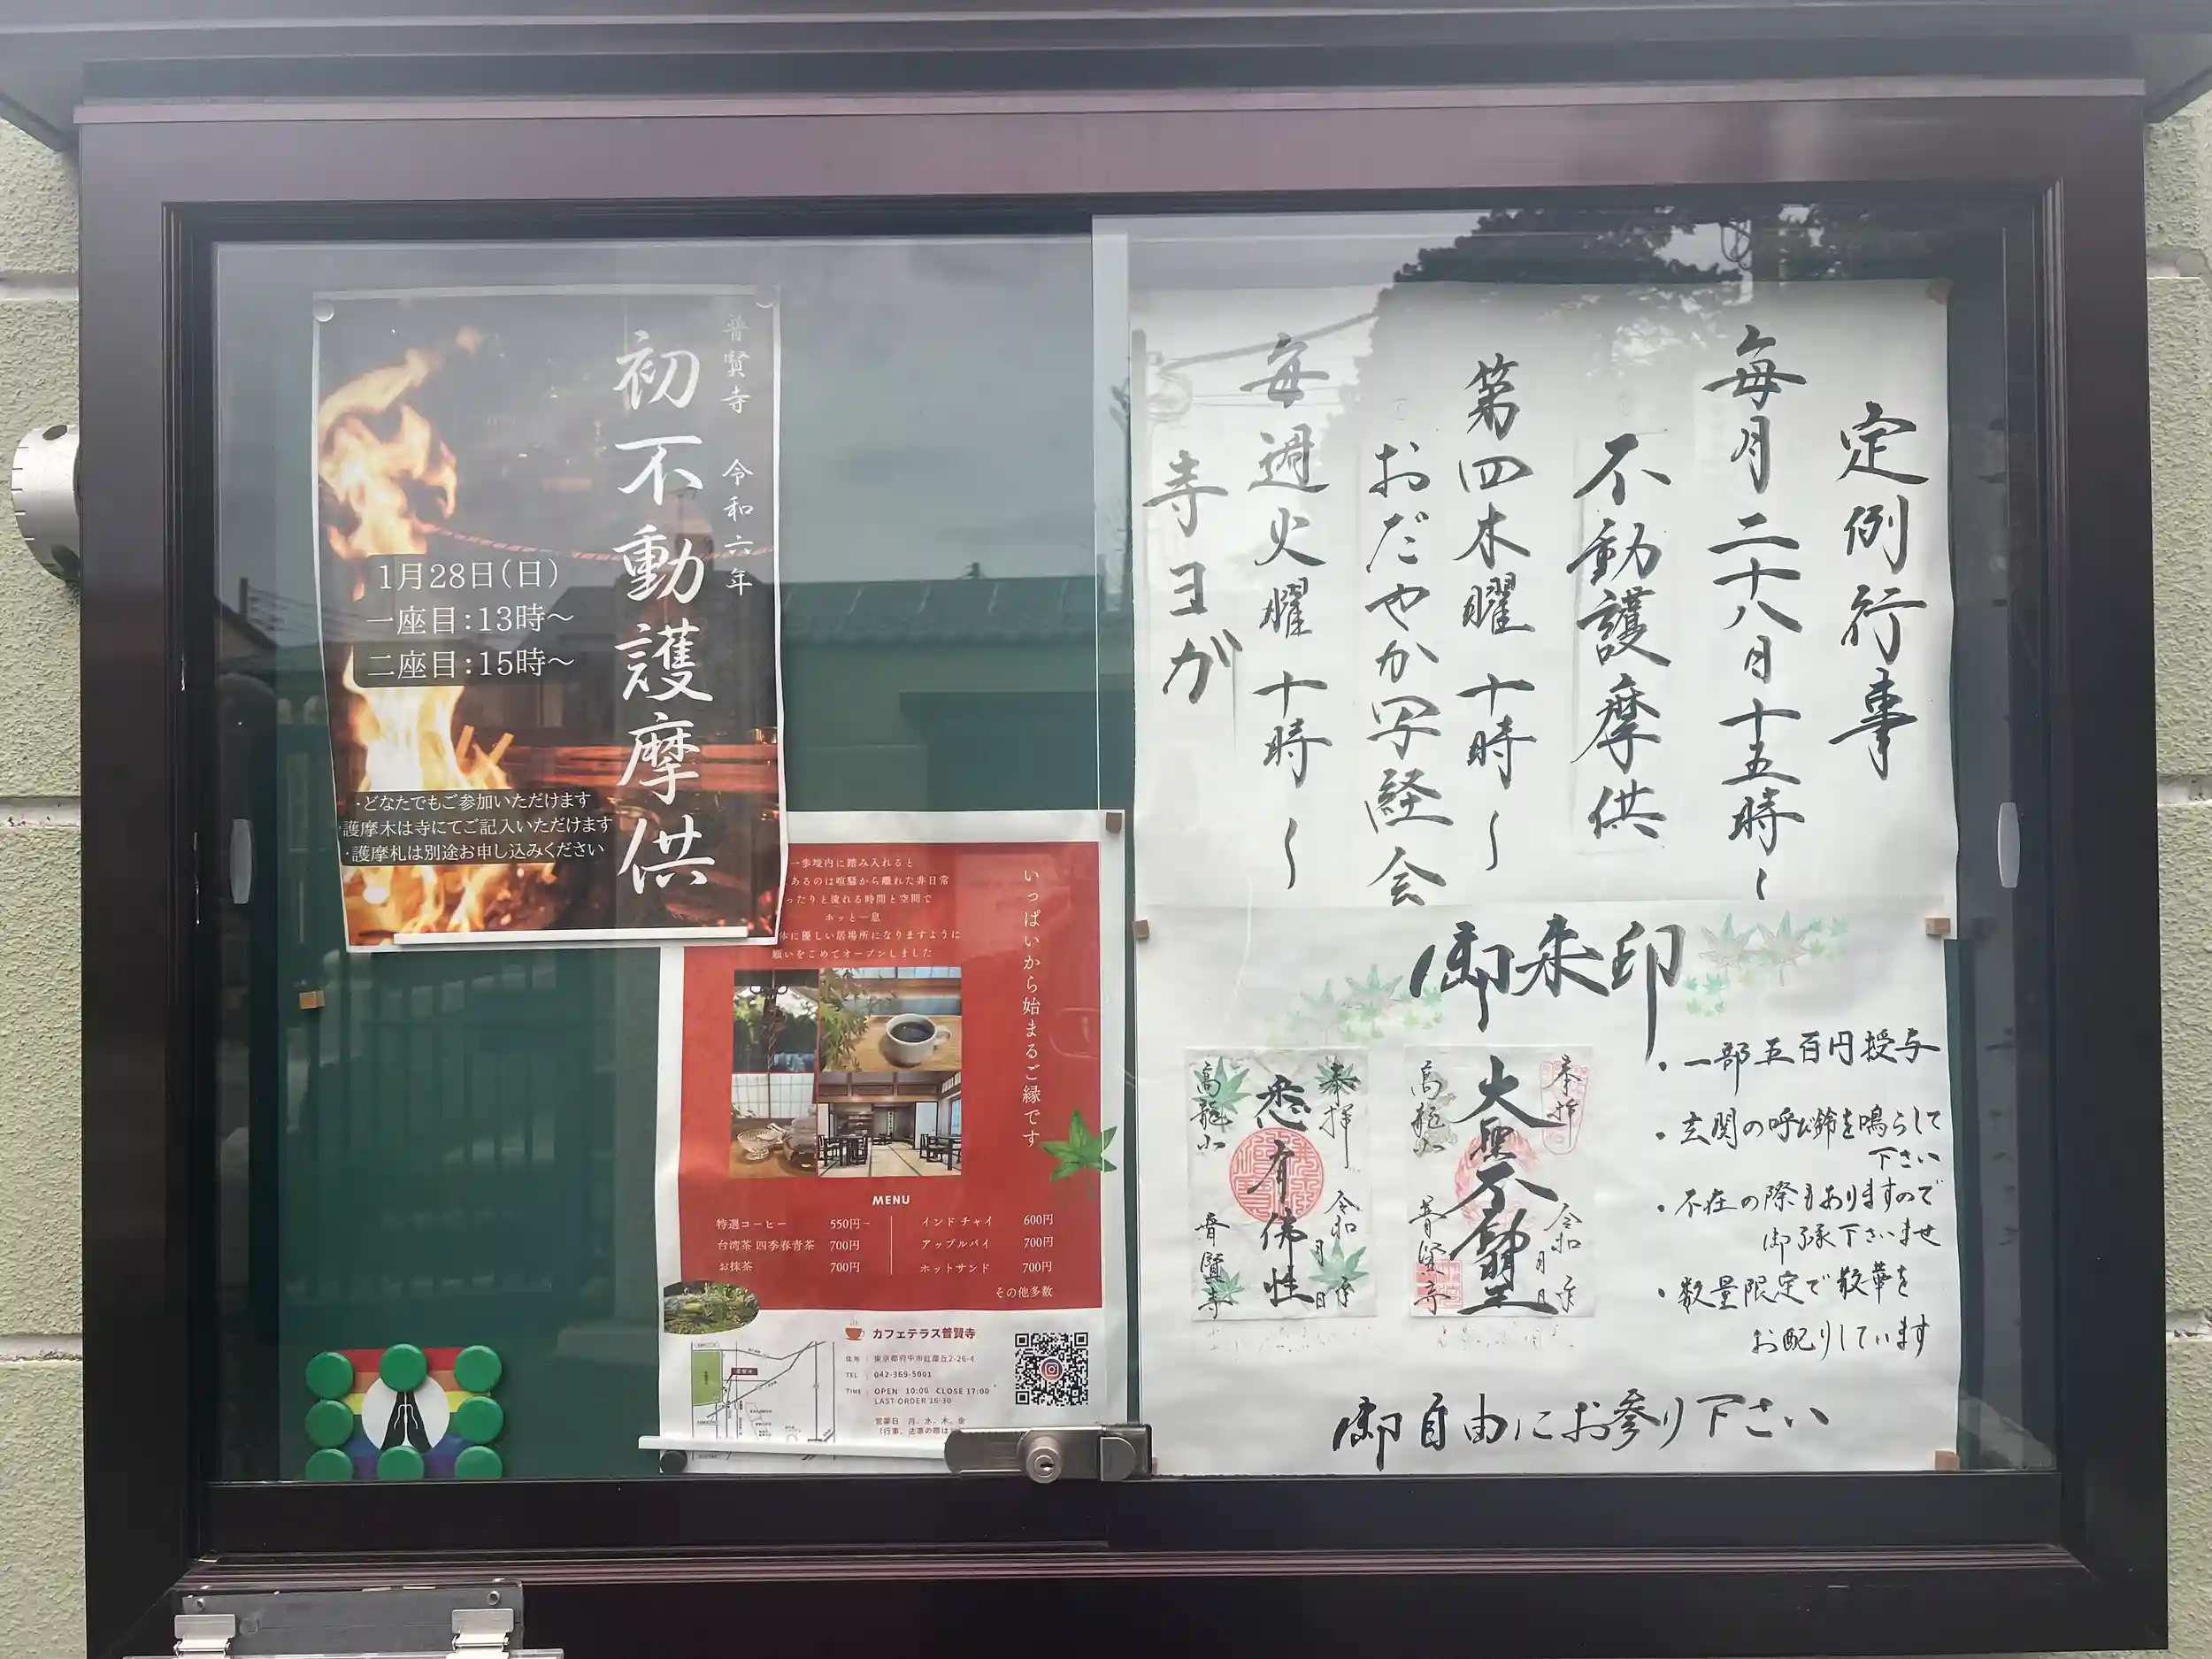 普賢寺 令和六年
初不動護摩供
1月28日(日)
一座目:13時～
二座目:15時～
・どなたでもご参加いただけます
・護摩木は寺にてご記入いただけます
・護摩札は別途お申し込みください
一歩境内に踏み入れると
あるのは喧騒から離れた非日常
ったりと流れる時間と空間で
ホッと一息
体に優しい居場所になりますように
願いをこめてオープンしました
いっぱいから始まるご縁です
MENU
特選コーヒー 550円~
台湾茶 四季春青茶 700円
お抹茶 700円
インド チャイ 600円
アップルパイ 700円
ホットサンド 700円
その他多数
カフェテラス普賢寺
住所 東京都府中市紅葉丘2-26-4
TEL 042-369-5001
TIME OPEN 10:00 CLOSE 17:00
LAST ORDER 16:30
営業日 月、水、木、金
定例行事
毎月二十八日十五時～
不動護摩供
第四木曜十時～
おだやか写経会
毎週火曜十時～
寺ヨガ
御朱印
・一部五百円授与
・玄関の呼び鈴を鳴らして
下さい
・不在の際もありますので
御了承下さいませ
・数量限定で散華を
お配りしています
奉拝
令和 年 月 日
大聖不動明王
高龍山
普賢寺
奉拝
令和 年 月 日
悉有佛性
高龍山
普賢寺
御自由にお参り下さい